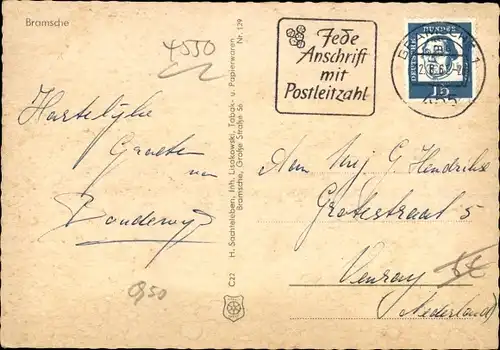 Bramsche
4550
Nr. 129
Jede
Anschrift
mit
Postleitzahl
DEUTSCHE BUNDESPOST
15
H. Sachteleben, Inh. Lisakowski, Tabak- u. Papierwaren
Bramsche, Große Straße 56
C22
Hartelijke
Groeten
van
Bouderwijn
Aan Mej G Hendrikse
Grotestraat 5
Venray
Nederland
0,50